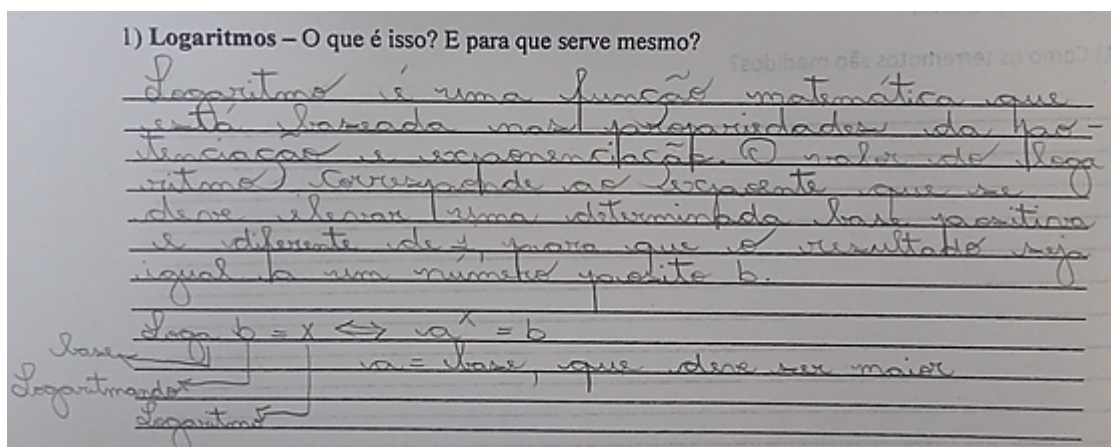 1) Logaritmos – O que é isso? E para que serve mesmo?
Logaritmo é uma função matemática que
está baseada nas propriedades da po-
tenciação e exponenciação. O valor do loga
ritmo corresponde ao expoente que se
deve elevar uma determinada base positiva
e diferente de 1, para que o resultado seja
igual a um número posito b.
Loga b = x ⇔ a^x = b
base
a = base, que deve ser maior
Logaritmando
Logaritmo